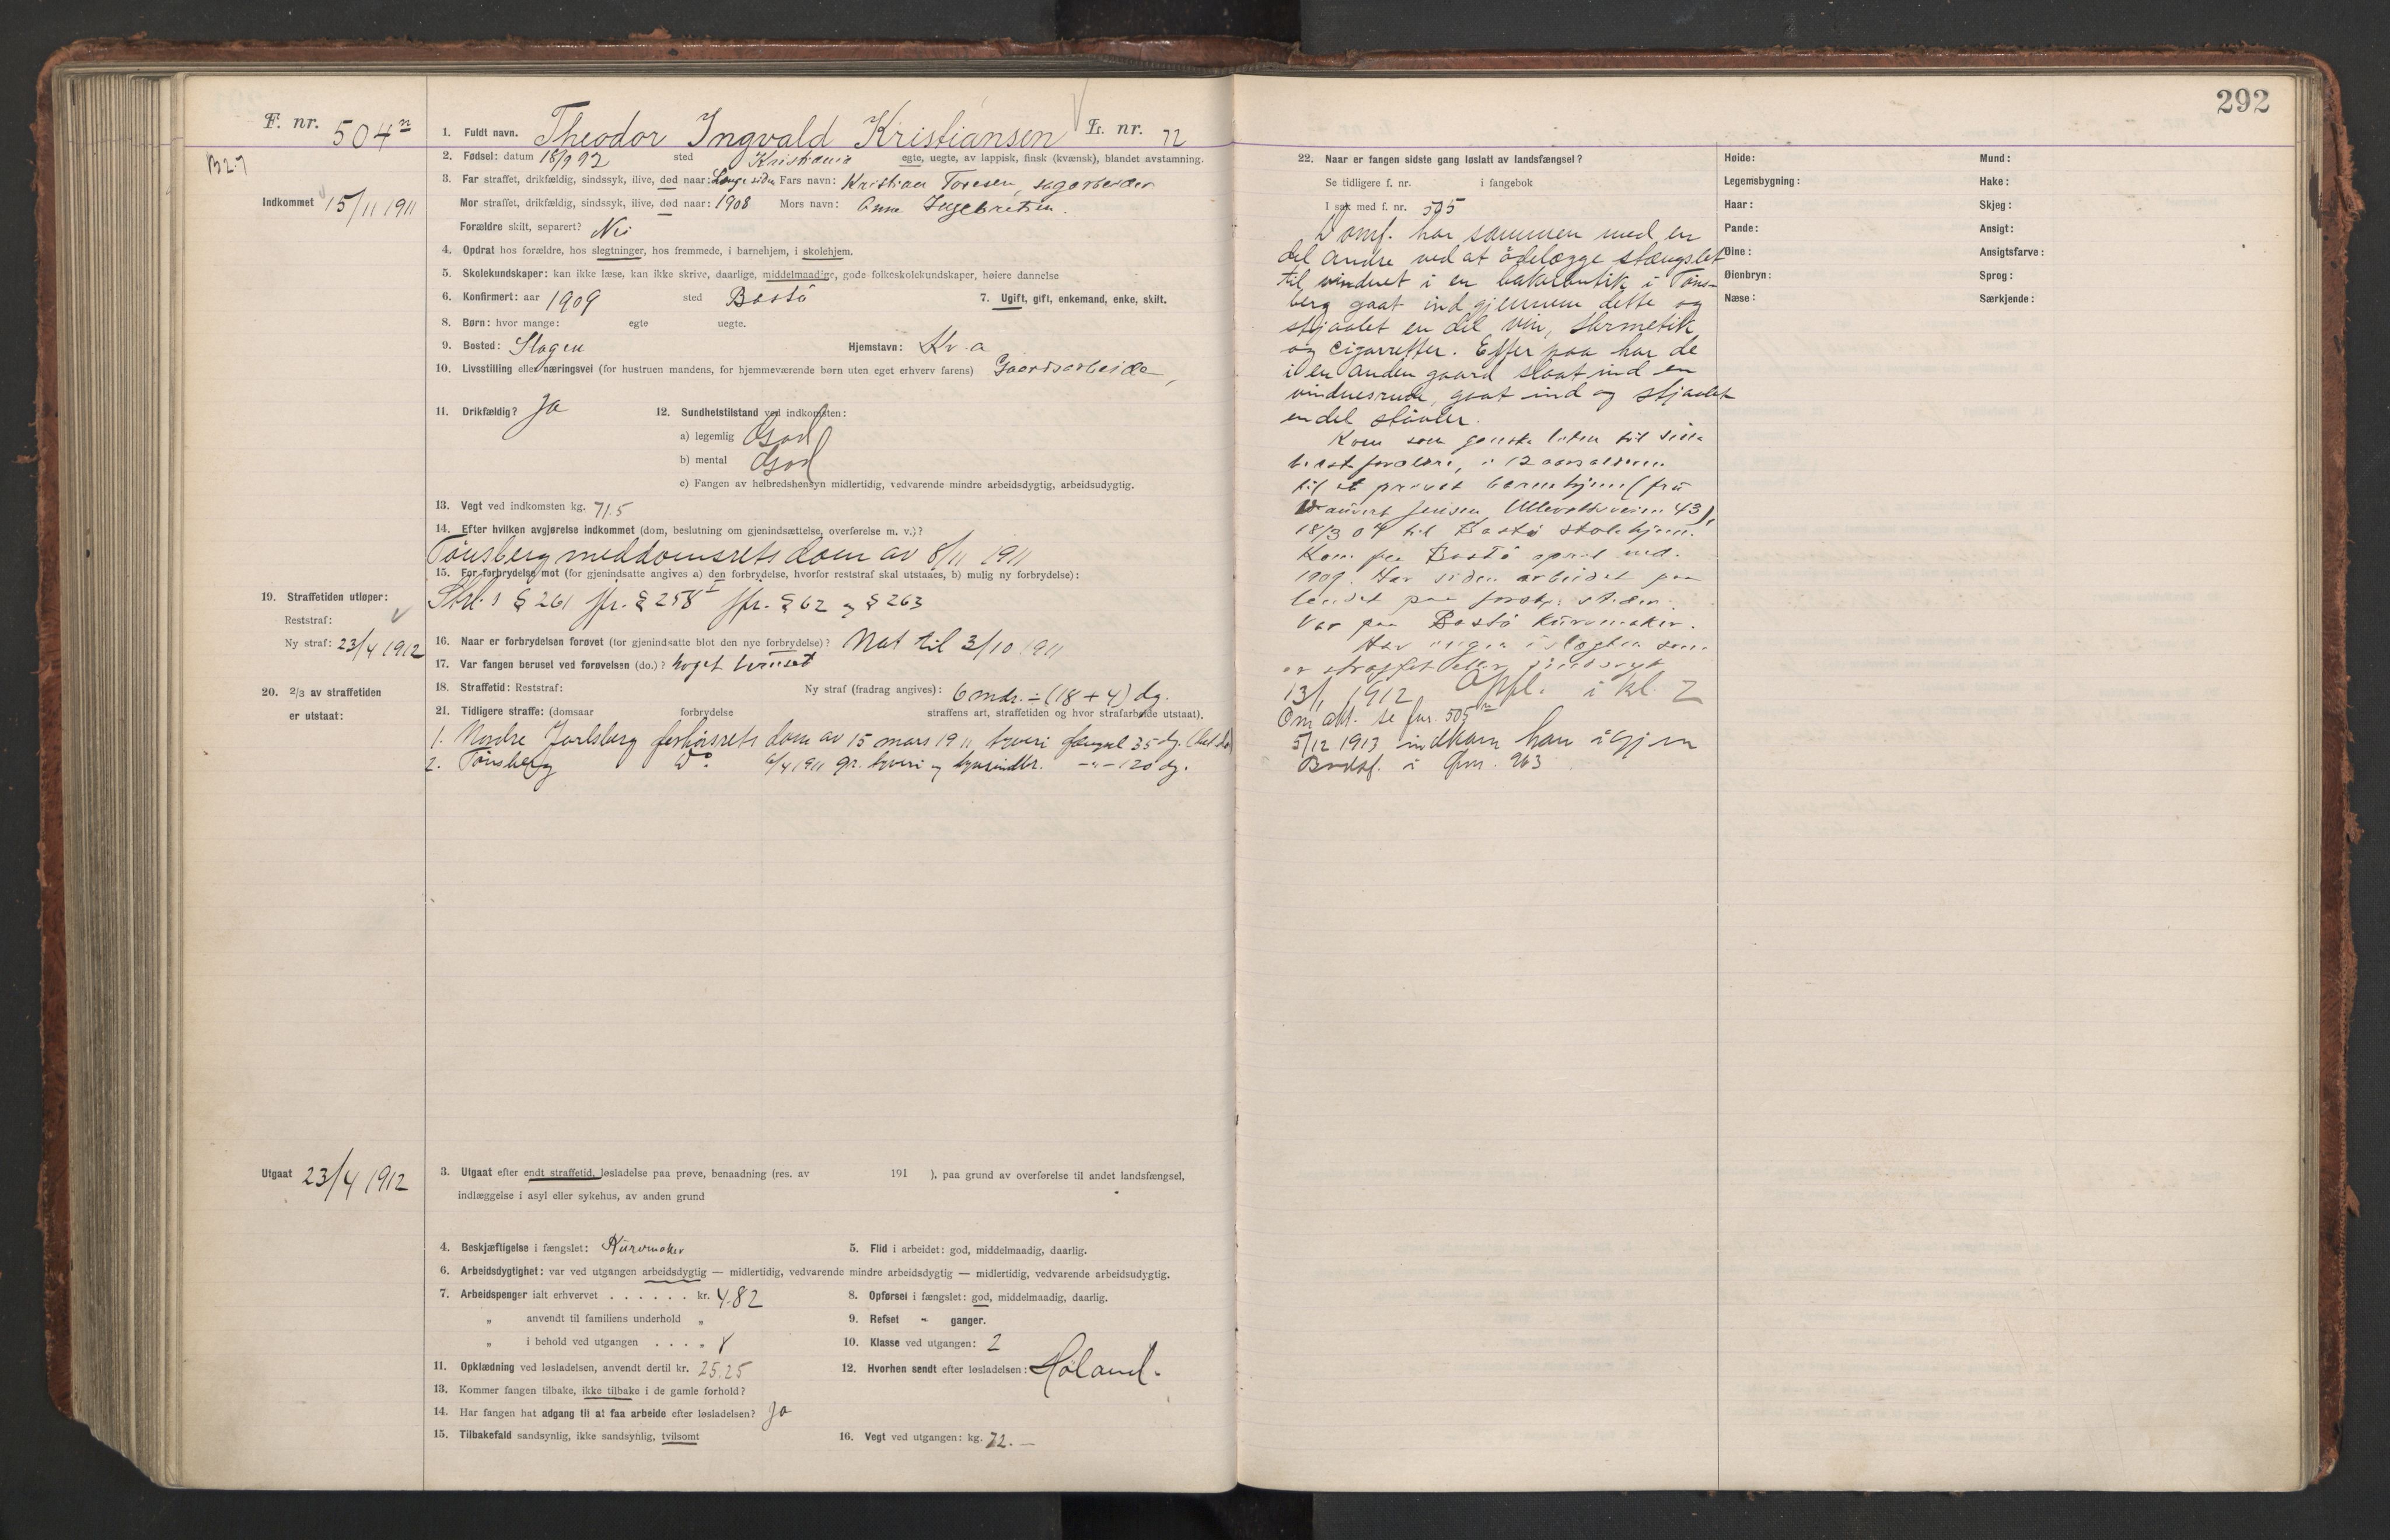 F. nr. 504 n
B 27
Indkommet 15/11 1911
1. Fuldt navn. Theodor Ingvald Kristiansen L. nr. 72
2. Fødsel: datum 18/9 92 sted Kristiania egte, uegte, av lappisk, finsk (kvænsk), blandet avstamning.
3. Far straffet, drikfældig, sindssyk, ilive, død naar: Længe siden Fars navn: Kristian Toresen, sagarbeider
Mor straffet, drikfældig, sindssyk, ilive, død naar: 1908 Mors navn: Anne Ingebretsen.
Forældre skilt, separert? Nei
4. Opdrat hos forældre, hos slegtninger, hos fremmede, i barnehjem, i skolehjem.
5. Skolekundskaper: kan ikke læse, kan ikke skrive, daarlige, middelmaadige, gode folkeskolekundskaper, høiere dannelse
6. Konfirmert: aar 1909 sted Bastö 7. Ugift, gift, enkemand, enke, skilt.
8. Børn: hvor mange: egte uegte.
9. Bosted: Slagen Hjemstavn: Kr.a
10. Livsstilling eller næringsvei (for hustruen mandens, for hjemmeværende børn uten eget erhverv farens) Gaardsarbeider
11. Drikfældig? Ja 12. Sundhetstilstand ved indkomsten:
a) legemlig God
b) mental God
c) Fangen av helbredshensyn midlertidig, vedvarende mindre arbeidsdygtig, arbeidsudygtig.
13. Vegt ved indkomsten kg. 71.5
14. Efter hvilken avgjørelse indkommet (dom, beslutning om gjenindsættelse, overførelse m. v.)?
Tönsberg meddomsrets dom av 8/11 1911
15. For forbrydelse mot (for gjenindsatte angives a) den forbrydelse, hvorfor reststraf skal utstaaes, b) mulig ny forbrydelse):
Strl.s § 261 jfr. § 258 I jfr. § 62 og § 263
19. Straffetiden utløper:
Reststraf:
Ny straf: 23/4 1912
16. Naar er forbrydelsen forøvet (for gjenindsatte blot den nye forbrydelse)? Nat til 3/10 1911
17. Var fangen beruset ved forøvelsen (do.)? Noget beruset
18. Straffetid: Reststraf: Ny straf (fradrag angives): 6 mdr. ÷ (18 + 4) dg.
20. 2/3 av straffetiden
er utstaat:
21. Tidligere straffe: (domsaar forbrydelse straffens art, straffetiden og hvor strafarbeide utstaat).
1. Nordre Jarlsberg forhörsrets dom av 15 mars 1911 tyveri fængsel 35 dg.
2. Tönsberg Do 6/4 1911 gr. tyveri og tyvsindbr. -"- 120 dg.
Utgaat 23/4 1912
3. Utgaat efter endt straffetid, løsladelse paa prøve, benaadning (res. av 191 ), paa grund av overførelse til andet landsfængsel,
indlæggelse i asyl eller sykehus, av anden grund
4. Beskjæftigelse i fængslet: Kurvmaker 5. Flid i arbeidet: god, middelmaadig, daarlig.
6. Arbeidsdygtighet: var ved utgangen arbeidsdygtig — midlertidig, vedvarende mindre arbeidsdygtig — midlertidig, vedvarende arbeidsudygtig.
7. Arbeidspenger ialt erhvervet . . . . . . kr. 4.82 8. Opførsel i fængslet: god, middelmaadig, daarlig.
" anvendt til familiens underhold " 9. Refset - ganger.
" i behold ved utgangen . . . . " 10. Klasse ved utgangen: 2
11. Opklædning ved løsladelsen, anvendt dertil kr. 25.25 12. Hvorhen sendt efter løsladelsen: Høland.
13. Kommer fangen tilbake, ikke tilbake i de gamle forhold?
14. Har fangen hat adgang til at faa arbeide efter løsladelsen? Ja
15. Tilbakefald sandsynlig, ikke sandsynlig, tvilsomt 16. Vegt ved utgangen: kg. 72.—
292
22. Naar er fangen sidste gang løslatt av landsfængsel?
Se tidligere f. nr. i fangebok
I sak med f. nr. 505
Domf. har sammen med en
del andre ved at ödelægge stængslet
til vinduet i en bakerbutik i Töns-
berg gaat ind gjennem dette og
stjaalet en del vin, hermetik
og cigarretter. Efter paa har de
i en anden gaard slaat ind en
vinduesrude, gaat ind og stjaalet
endel stövler.
Kom som ganske liten til sine
besteforældre, i 12 aarsalderen
til et privat barnehjem (fru
Jensen, Ullevoldsveien 43),
18/3 04 til Bastö skolehjem.
Kom fra Bastö april md.
1909. Har siden arbeidet paa
landet paa forskj. steder.
Var paa Bastö kurvmaker.
Har ingen i slægten som
er straffet eller sindssyk
13/1 1912 Opfl. i kl. 2
Om akt. se fnr. 505 n
5/12 1913 indkom han igjen
Bodsf. i fnr. 263
Høide:
Legemsbygning:
Haar:
Pande:
Øine:
Øienbryn:
Næse:
Mund:
Hake:
Skjeg:
Ansigt:
Ansigtsfarve:
Sprog:
Særkjende: